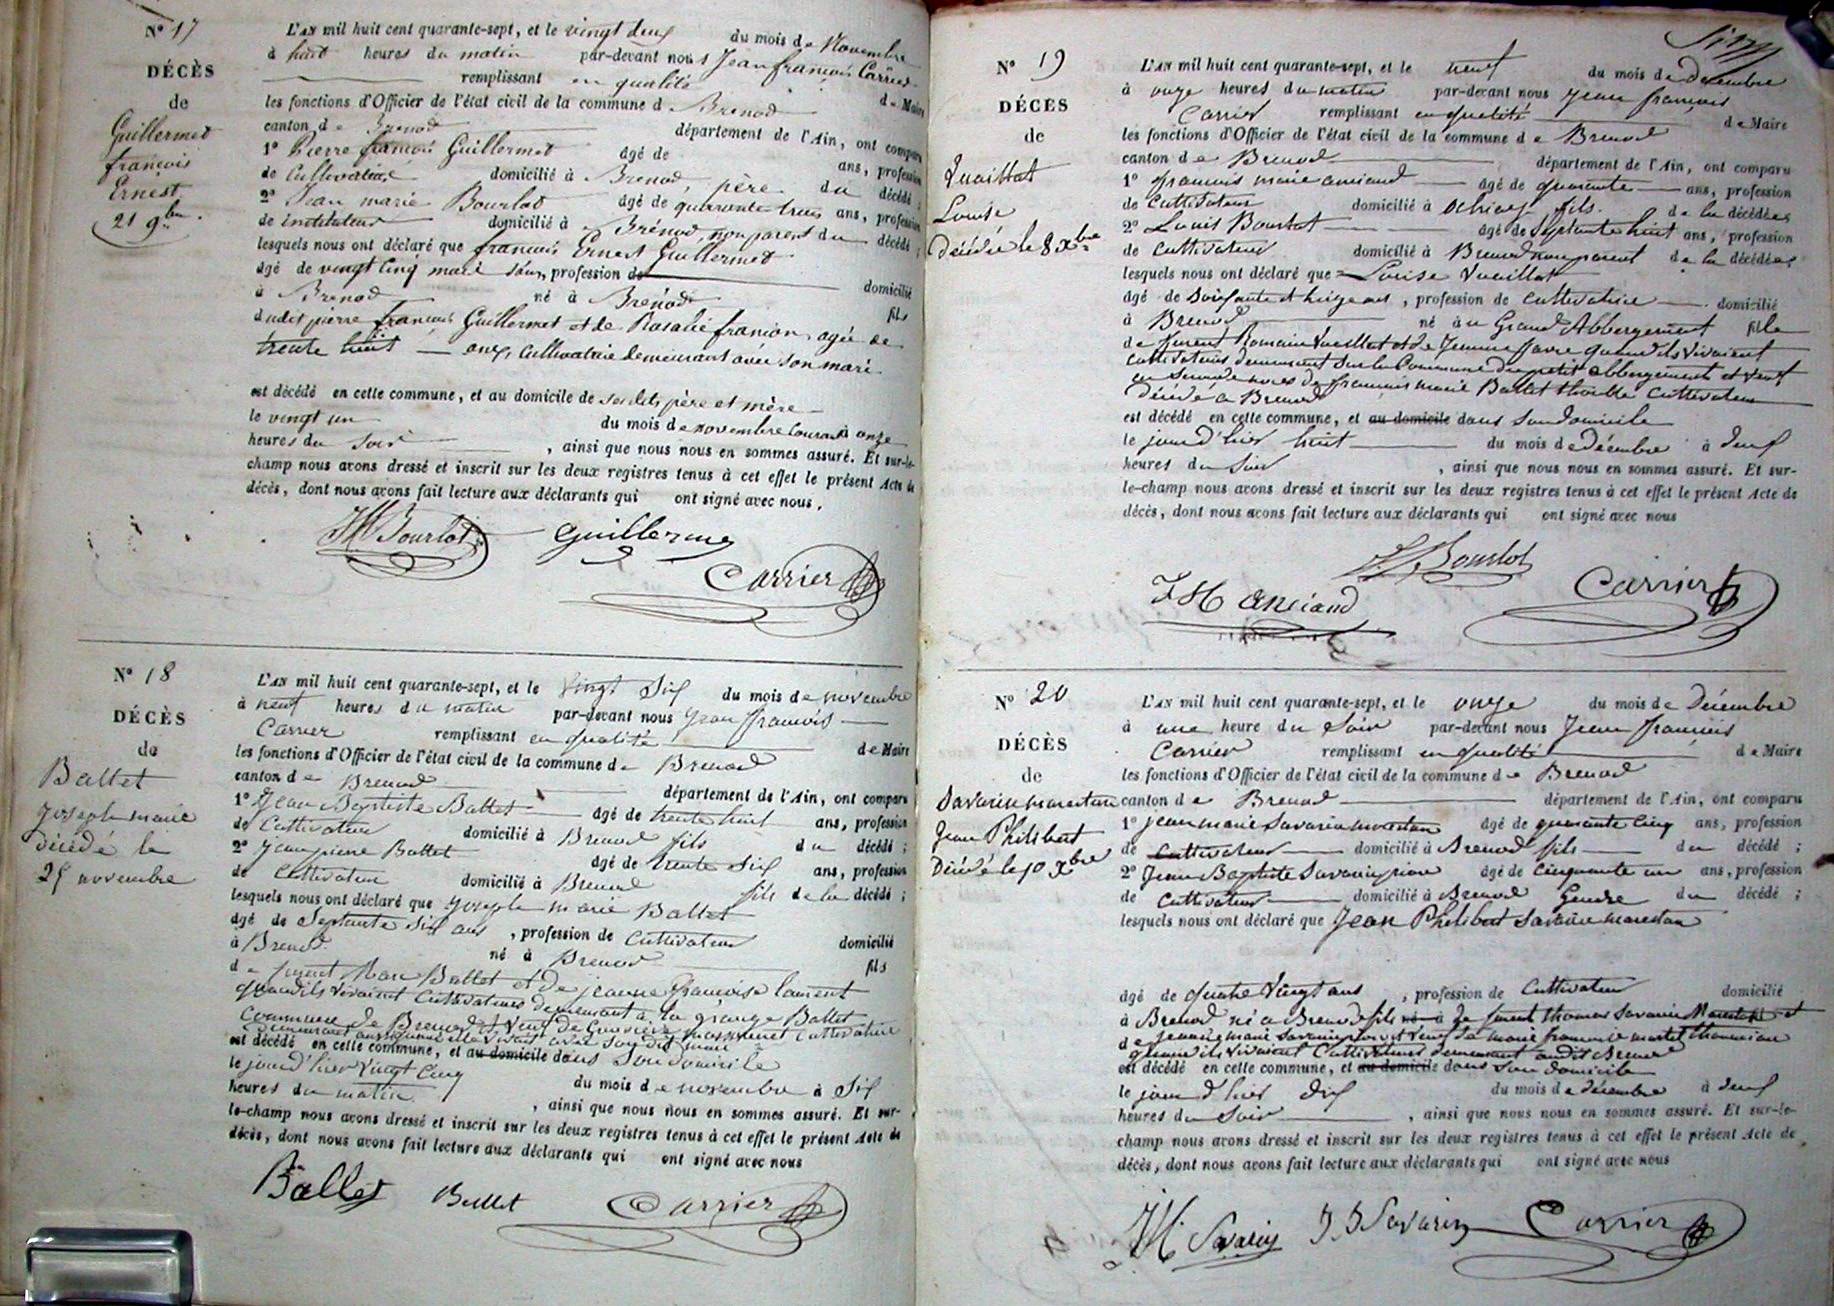 N° 17
DÉCÈS
de
Guillermet
françois
Ernest
21 9bre
L'AN mil huit cent quarante-sept, et le vingt deux du mois de Novembre
à huit heures du matin par-devant nous Jean françois Carrier
remplissant en qualité de Maire
les fonctions d'Officier de l'état civil de la commune de Brenod
canton de Brenod département de l'Ain, ont comparu
1° Pierre françois Guillermet âgé de ans, profession
de Cultivateur domicilié à Brenod, père du décédé ;
2° Jean marie Bourlot âgé de quarante trois ans, profession
de instituteur domicilié à Brénod, non parent du décédé ;
lesquels nous ont déclaré que françois Ernest Guillermet
âgé de vingt cinq mois , profession de domicilié
à Brenod né à Brenod fils
dudit pierre françois Guillermet et de Rosalie françon, agée de
trente huit ans, Cultivatrice demeurant avec son mari
est décédé en cette commune, et au domicile de sesdits père et mère
le vingt un du mois de novembre courant à onze
heures du soir , ainsi que nous nous en sommes assuré. Et sur-le-
champ nous avons dressé et inscrit sur les deux registres tenus à cet effet le présent Acte de
décès, dont nous avons fait lecture aux déclarants qui ont signé avec nous.
JM Bourlot Guillermet
Carrier
N° 18
DÉCÈS
de
Ballet
joseph marie
décédé le
25 novembre
L'AN mil huit cent quarante-sept, et le vingt Six du mois de novembre
à neuf heures du matin par-devant nous Jean françois
Carrier remplissant en qualité de Maire
les fonctions d'Officier de l'état civil de la commune de Brenod
canton de Brenod département de l'Ain, ont comparu
1° Jean Baptiste Ballet âgé de trente huit ans, profession
de Cultivateur domicilié à Brenod fils du décédé ;
2° Jean pierre Ballet âgé de trente Six ans, profession
de Cultivateur domicilié à Brenod fils de la décédé ;
lesquels nous ont déclaré que joseph marie Ballet
âgé de Septante Six ans , profession de Cultivateur domicilié
à Brenod né à Brenod fils
de furent Marc Ballet et de jeanne françoise laurent
quand ils vivaient Cultivateurs demeurant à la grange Ballet
Commune de Brenod et veuf de Cultivatrice
demeurant avec son dit mari
est décédé en cette commune, et au domicile dans Son domicile
le jour d'hier vingt Cinq du mois de novembre à Six
heures du matin , ainsi que nous nous en sommes assuré. Et sur-
le-champ nous avons dressé et inscrit sur les deux registres tenus à cet effet le présent Acte de
décès, dont nous avons fait lecture aux déclarants qui ont signé avec nous
Ballet Ballet Carrier
N° 19
DÉCÈS
de
Vuaillat
Louise
Décédée le 8 Xbre
L'AN mil huit cent quarante-sept, et le neuf du mois de Decembre
à onze heures du matin par-devant nous Jean françois
Carrier remplissant en qualité de Maire
les fonctions d'Officier de l'état civil de la commune de Brenod
canton de Brenod département de l'Ain, ont comparu
1° francois marie anciand âgé de quarante ans, profession
de Cultivateur domicilié à fils de la décédée ;
2° Louis Bourlot âgé de Septante huit ans, profession
de Cultivateur domicilié à Brenod non parent de la décédée ;
lesquels nous ont déclaré que Louise Vuaillat
âgé de Soixante et ans , profession de Cultivatrice domicilié
à Brenod né au Grand Abbergement fille
de furent Romain Vuaillat et de Jeanne favre quand ils vivaient
Cultivateurs demeurant Sur la Commune du petit abbergement et veuf
en Seconde noces de françois marie Ballet Cultivateur
Décédé à Brenod
est décédé en cette commune, et au domicile dans Son domicile
le jour d'hier huit du mois de décembre à deux
heures du Soir , ainsi que nous nous en sommes assuré. Et sur-
le-champ nous avons dressé et inscrit sur les deux registres tenus à cet effet le présent Acte de
décès, dont nous avons fait lecture aux déclarants qui ont signé avec nous
Bourlot
F M anciand Carrier
N° 20
DÉCÈS
de
Savarin marestan
Jean Philibert
Décédé le 10 Xbre
L'AN mil huit cent quarante-sept, et le onze du mois de Décembre
à une heure du Soir par-devant nous Jean françois
Carrier remplissant en qualité de Maire
les fonctions d'Officier de l'état civil de la commune de Brenod
canton de Brenod département de l'Ain, ont comparu
1° jean marie Savarin marestan âgé de quarante Cinq ans, profession
de Cultivateur domicilié à Brenod fils du décédé ;
2° Jean Baptiste Savarin pion âgé de Cinquante un ans, profession
de Cultivateur domicilié à Brenod Gendre du décédé ;
lesquels nous ont déclaré que Jean Philibert Savarin marestan
âgé de quatre Vingt ans , profession de Cultivateur domicilié
à Brenod né à Brenod fils né à de furent thomas Savarin Marestan et
de jeanne marie savarin pion et veuf de marie francoise martel
quand ils vivaient Cultivateurs demeurant audit Brenod
est décédé en cette commune, et au domicile dans Son domicile
le jour d'hier dix du mois de décembre à deux
heures du Soir , ainsi que nous nous en sommes assuré. Et sur-le-
champ nous avons dressé et inscrit sur les deux registres tenus à cet effet le présent Acte de
décès, dont nous avons fait lecture aux déclarants qui ont signé avec nous
JM Savarin J. B Savarin Carrier